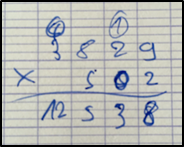 ① ①
3 8 2 9
× 5 0 2
12 5 3 8